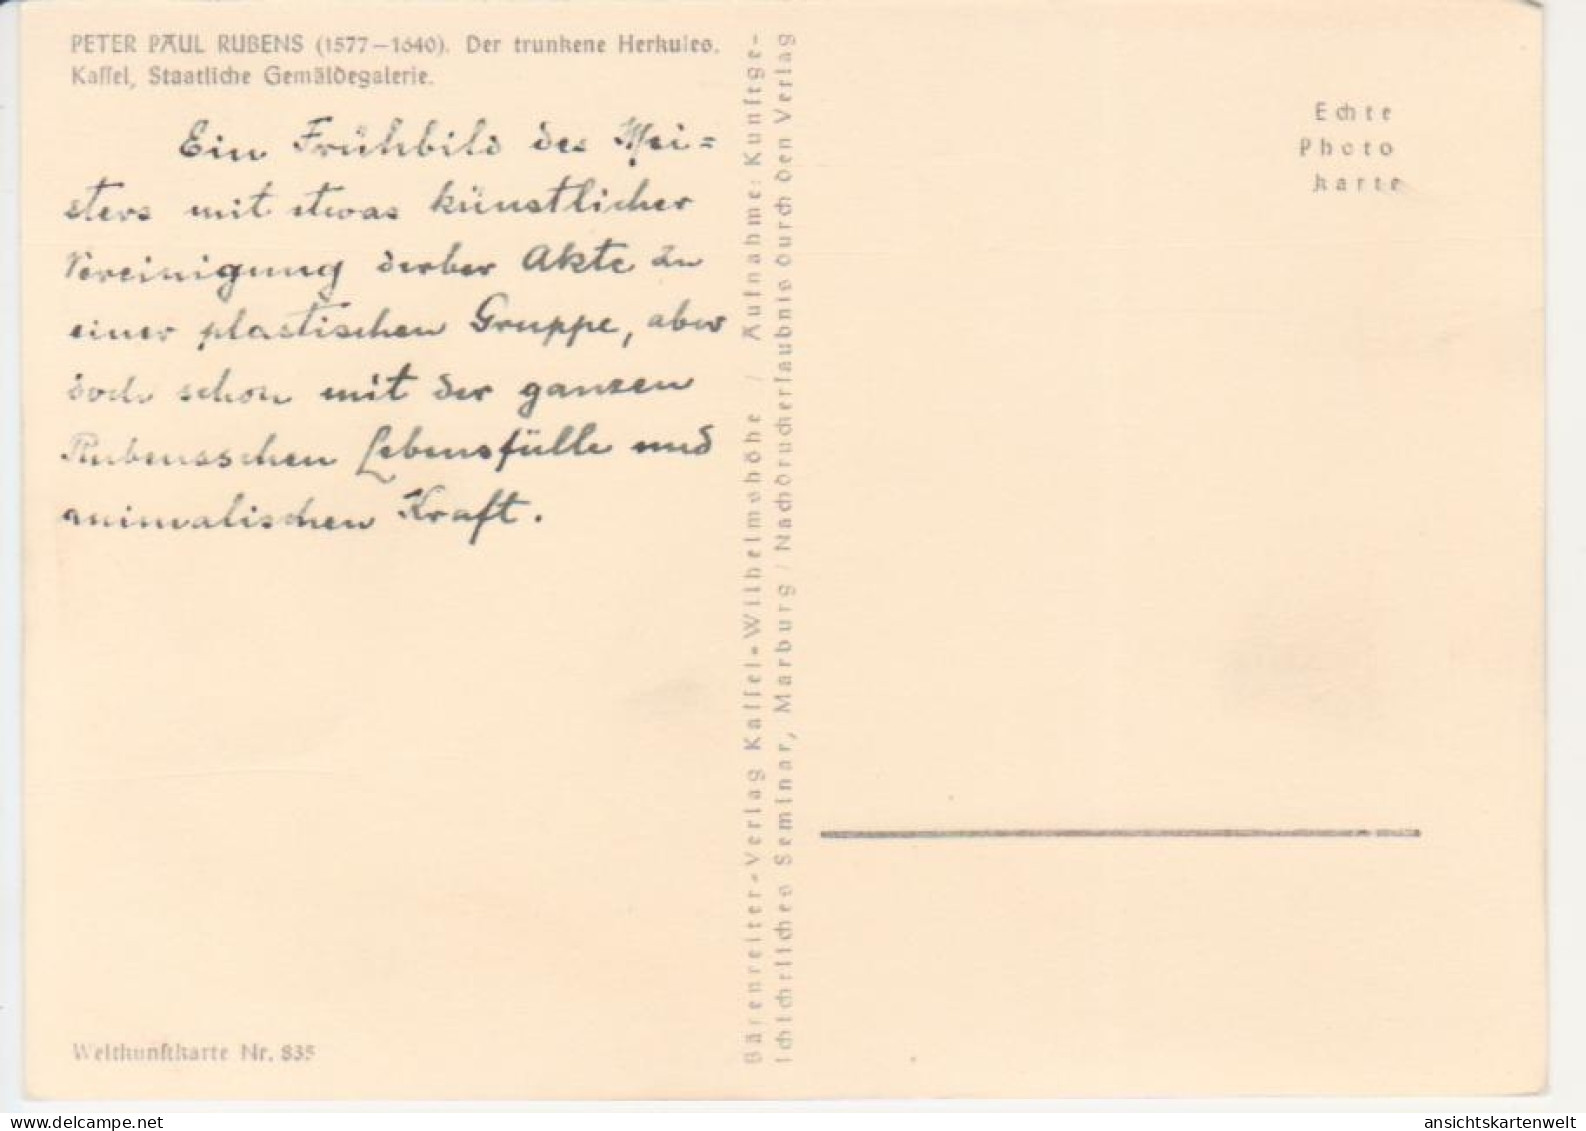 PETER PAUL RUBENS (1577–1640). Der trunkene Herkules.
Kaſſel, Staatliche Gemäldegalerie.
Ein Frühbild des Mei=
sters mit etwas künstlicher
Vereinigung derber Akte zu
einer plastischen Gruppe, aber
doch schon mit der ganzen
Rubensschen Lebensfülle und
animalischen Kraft.
Weltkunſtkarte Nr. 835
Bärenreiter-Verlag Kaſſel-Wilhelmshöhe / Aufnahme: Kunſtge-
ſchichtliches Seminar, Marburg / Nachdruckerlaubnis durch den Verlag
Echte
Photo
karte
delcampe.net
ansichtskartenwelt